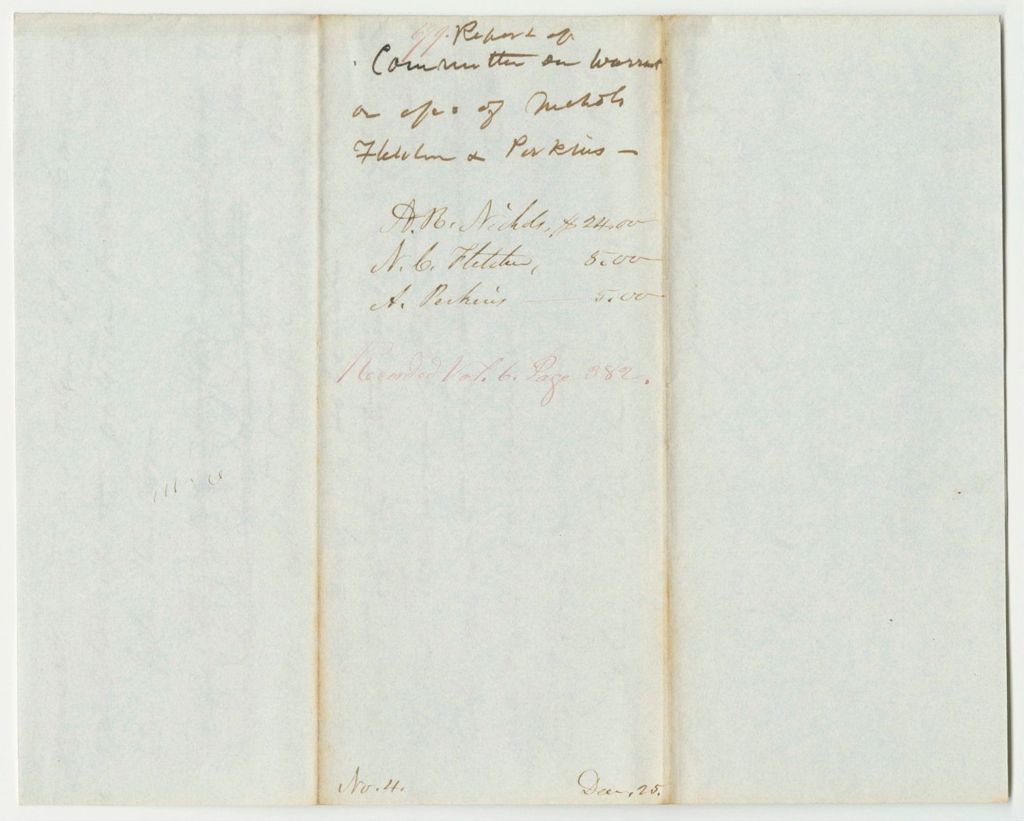 99. Report of
Committee on Warrant
on a/cs of Nichols
Fletcher & Perkins —
A. R. Nichols, $24.00
N. C. Fletcher, 5.00
A. Perkins — 5.00
Recorded Vol. 6. Page 382.
No. 4.
25.